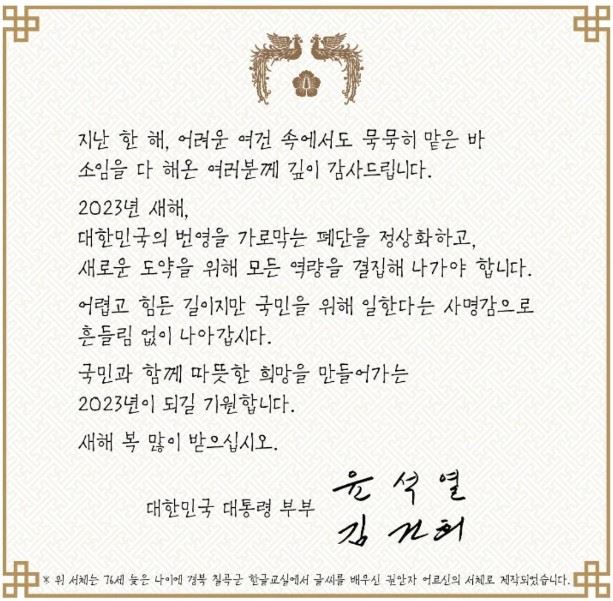 지난 한 해, 어려운 여건 속에서도 묵묵히 맡은 바
소임을 다 해온 여러분께 깊이 감사드립니다.
2023년 새해,
대한민국의 번영을 가로막는 폐단을 정상화하고,
새로운 도약을 위해 모든 역량을 결집해 나가야 합니다.
어렵고 힘든 길이지만 국민을 위해 일한다는 사명감으로
흔들림 없이 나아갑시다.
국민과 함께 따뜻한 희망을 만들어가는
2023년이 되길 기원합니다.
새해 복 많이 받으십시오.
대한민국 대통령 부부 윤석열
김건희
※ 위 서체는 76세 늦은 나이에 경북 칠곡군 한글교실에서 글씨를 배우신 권안자 어르신의 서체로 제작되었습니다.